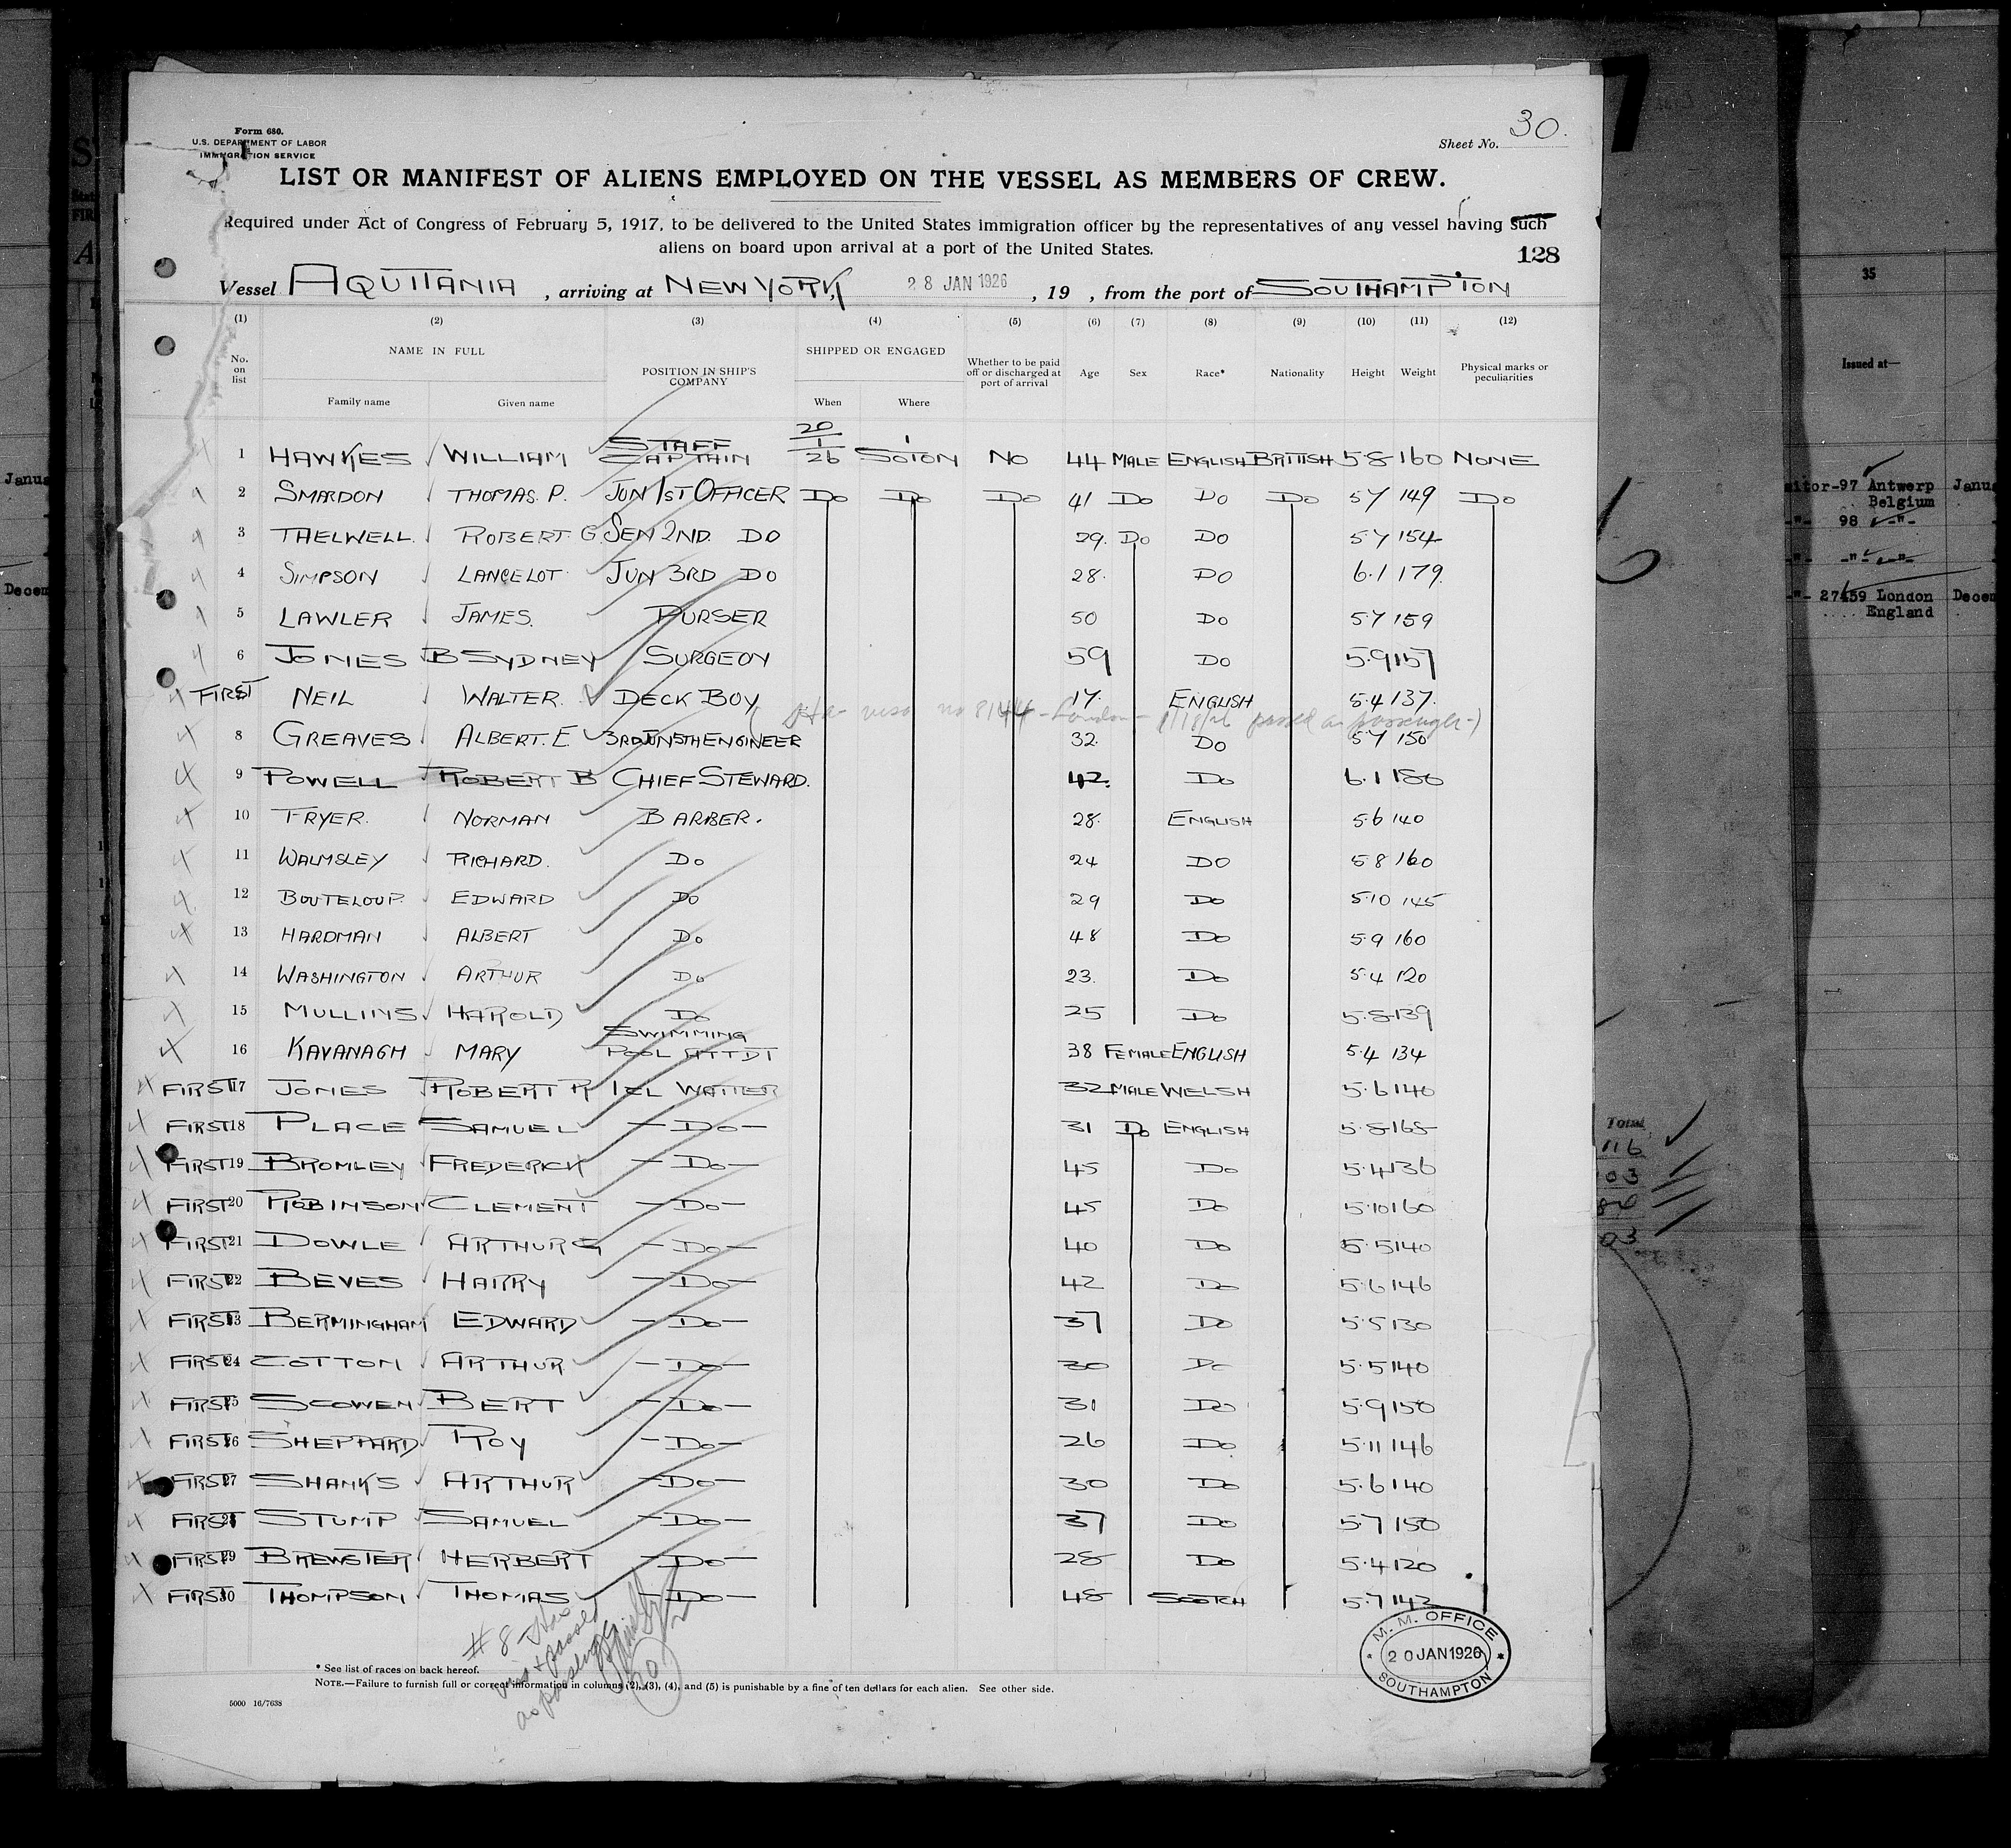 Form 680.
U.S. DEPARTMENT OF LABOR
IMMIGRATION SERVICE
Sheet No. 30.
LIST OR MANIFEST OF ALIENS EMPLOYED ON THE VESSEL AS MEMBERS OF CREW.
Required under Act of Congress of February 5, 1917, to be delivered to the United States immigration officer by the representatives of any vessel having such
aliens on board upon arrival at a port of the United States.
128
Vessel AQUITANIA, arriving at NEW YORK, 28 JAN 1926, 19 , from the port of SOUTHAMPTON
(1) (2) (3) (4) (5) (6) (7) (8) (9) (10) (11) (12)
No. on list NAME IN FULL POSITION IN SHIP'S COMPANY SHIPPED OR ENGAGED Whether to be paid off or discharged at port of arrival Age Sex Race* Nationality Height Weight Physical marks or peculiarities
Family name Given name When Where
1 HAWKES WILLIAM STAFF CAPTAIN 20/1/26 SOTON NO 44 MALE ENGLISH BRITISH 5-8 160 NONE
2 SMARDON THOMAS. P. JUN 1ST OFFICER DO DO DO 41 DO DO DO 5 7 149 DO
3 THELWELL. ROBERT. G. SEN 2ND. DO 29. DO DO 5 7 154
4 SIMPSON LANCELOT JUN 3RD DO 28. DO 6.1 179.
5 LAWLER JAMES. PURSER 50 DO 5.7 159
6 JONES B SYDNEY SURGEON 59 DO 5.9 157
FIRST NEIL WALTER. DECK BOY 17. ENGLISH 5.4 137.
visa no 8144 - London - 1/18/26 passed as passenger -)
8 GREAVES ALBERT. E. 3RD JUN 5TH ENGINEER 32. DO 5 7 150
9 POWELL ROBERT B CHIEF STEWARD. 42. DO 6.1 180
10 FRYER. NORMAN BARBER. 28. ENGLISH 5.6 140
11 WALMSLEY RICHARD. DO 24 DO 5 8 160
12 BOUTELOUP. EDWARD DO 29 DO 5.10 145
13 HARDMAN ALBERT DO 48 DO 5.9 160
14 WASHINGTON ARTHUR DO 23. DO 5.4 120
15 MULLINS HAROLD DO 25 DO 5.8 139
16 KAVANAGH MARY SWIMMING POOL ATTDT 38 FEMALE ENGLISH 5.4 134
FIRST 17 JONES ROBERT R 1CL WAITER 32 MALE WELSH 5.6 140
FIRST 18 PLACE SAMUEL -DO- 31 DO ENGLISH 5.8 168
FIRST 19 BROMLEY FREDERICK -DO- 45 DO 5.4 136
FIRST 20 ROBINSON CLEMENT -DO- 45 DO 5.10 160
FIRST 21 DOWLE ARTHUR G -DO- 40 DO 5.5 140
FIRST 22 BEVES HARRY -DO- 42 DO 5.6 146
FIRST 23 BERMINGHAM EDWARD -DO- 37 DO 5.5 130
FIRST 24 COTTON ARTHUR -DO- 30 DO 5.5 140
FIRST 25 SCOWEN BERT -DO- 31 DO 5.9 150
FIRST 26 SHEPPARD ROY -DO- 26 DO 5.11 146
FIRST 27 SHANKS ARTHUR -DO- 30 DO 5.6 140
FIRST 28 STUMP SAMUEL -DO- 37 DO 5.7 150
FIRST 29 BREWSTER HERBERT -DO- 28 DO 5.4 120
FIRST 30 THOMPSON THOMAS -DO- 48 SCOTCH 5.7 142
# 8 - Has
visa + passed
as passenger
30
M. M. OFFICE
20 JAN 1926
SOUTHAMPTON
* See list of races on back hereof.
NOTE.—Failure to furnish full or correct information in columns (2), (3), (4), and (5) is punishable by a fine of ten dollars for each alien. See other side.
5000 16/7638
35
Issued at—
97 Antwerp
Belgium
98 -"-
-"- -"-
-"- 27459 London
England
Total
116
03
03